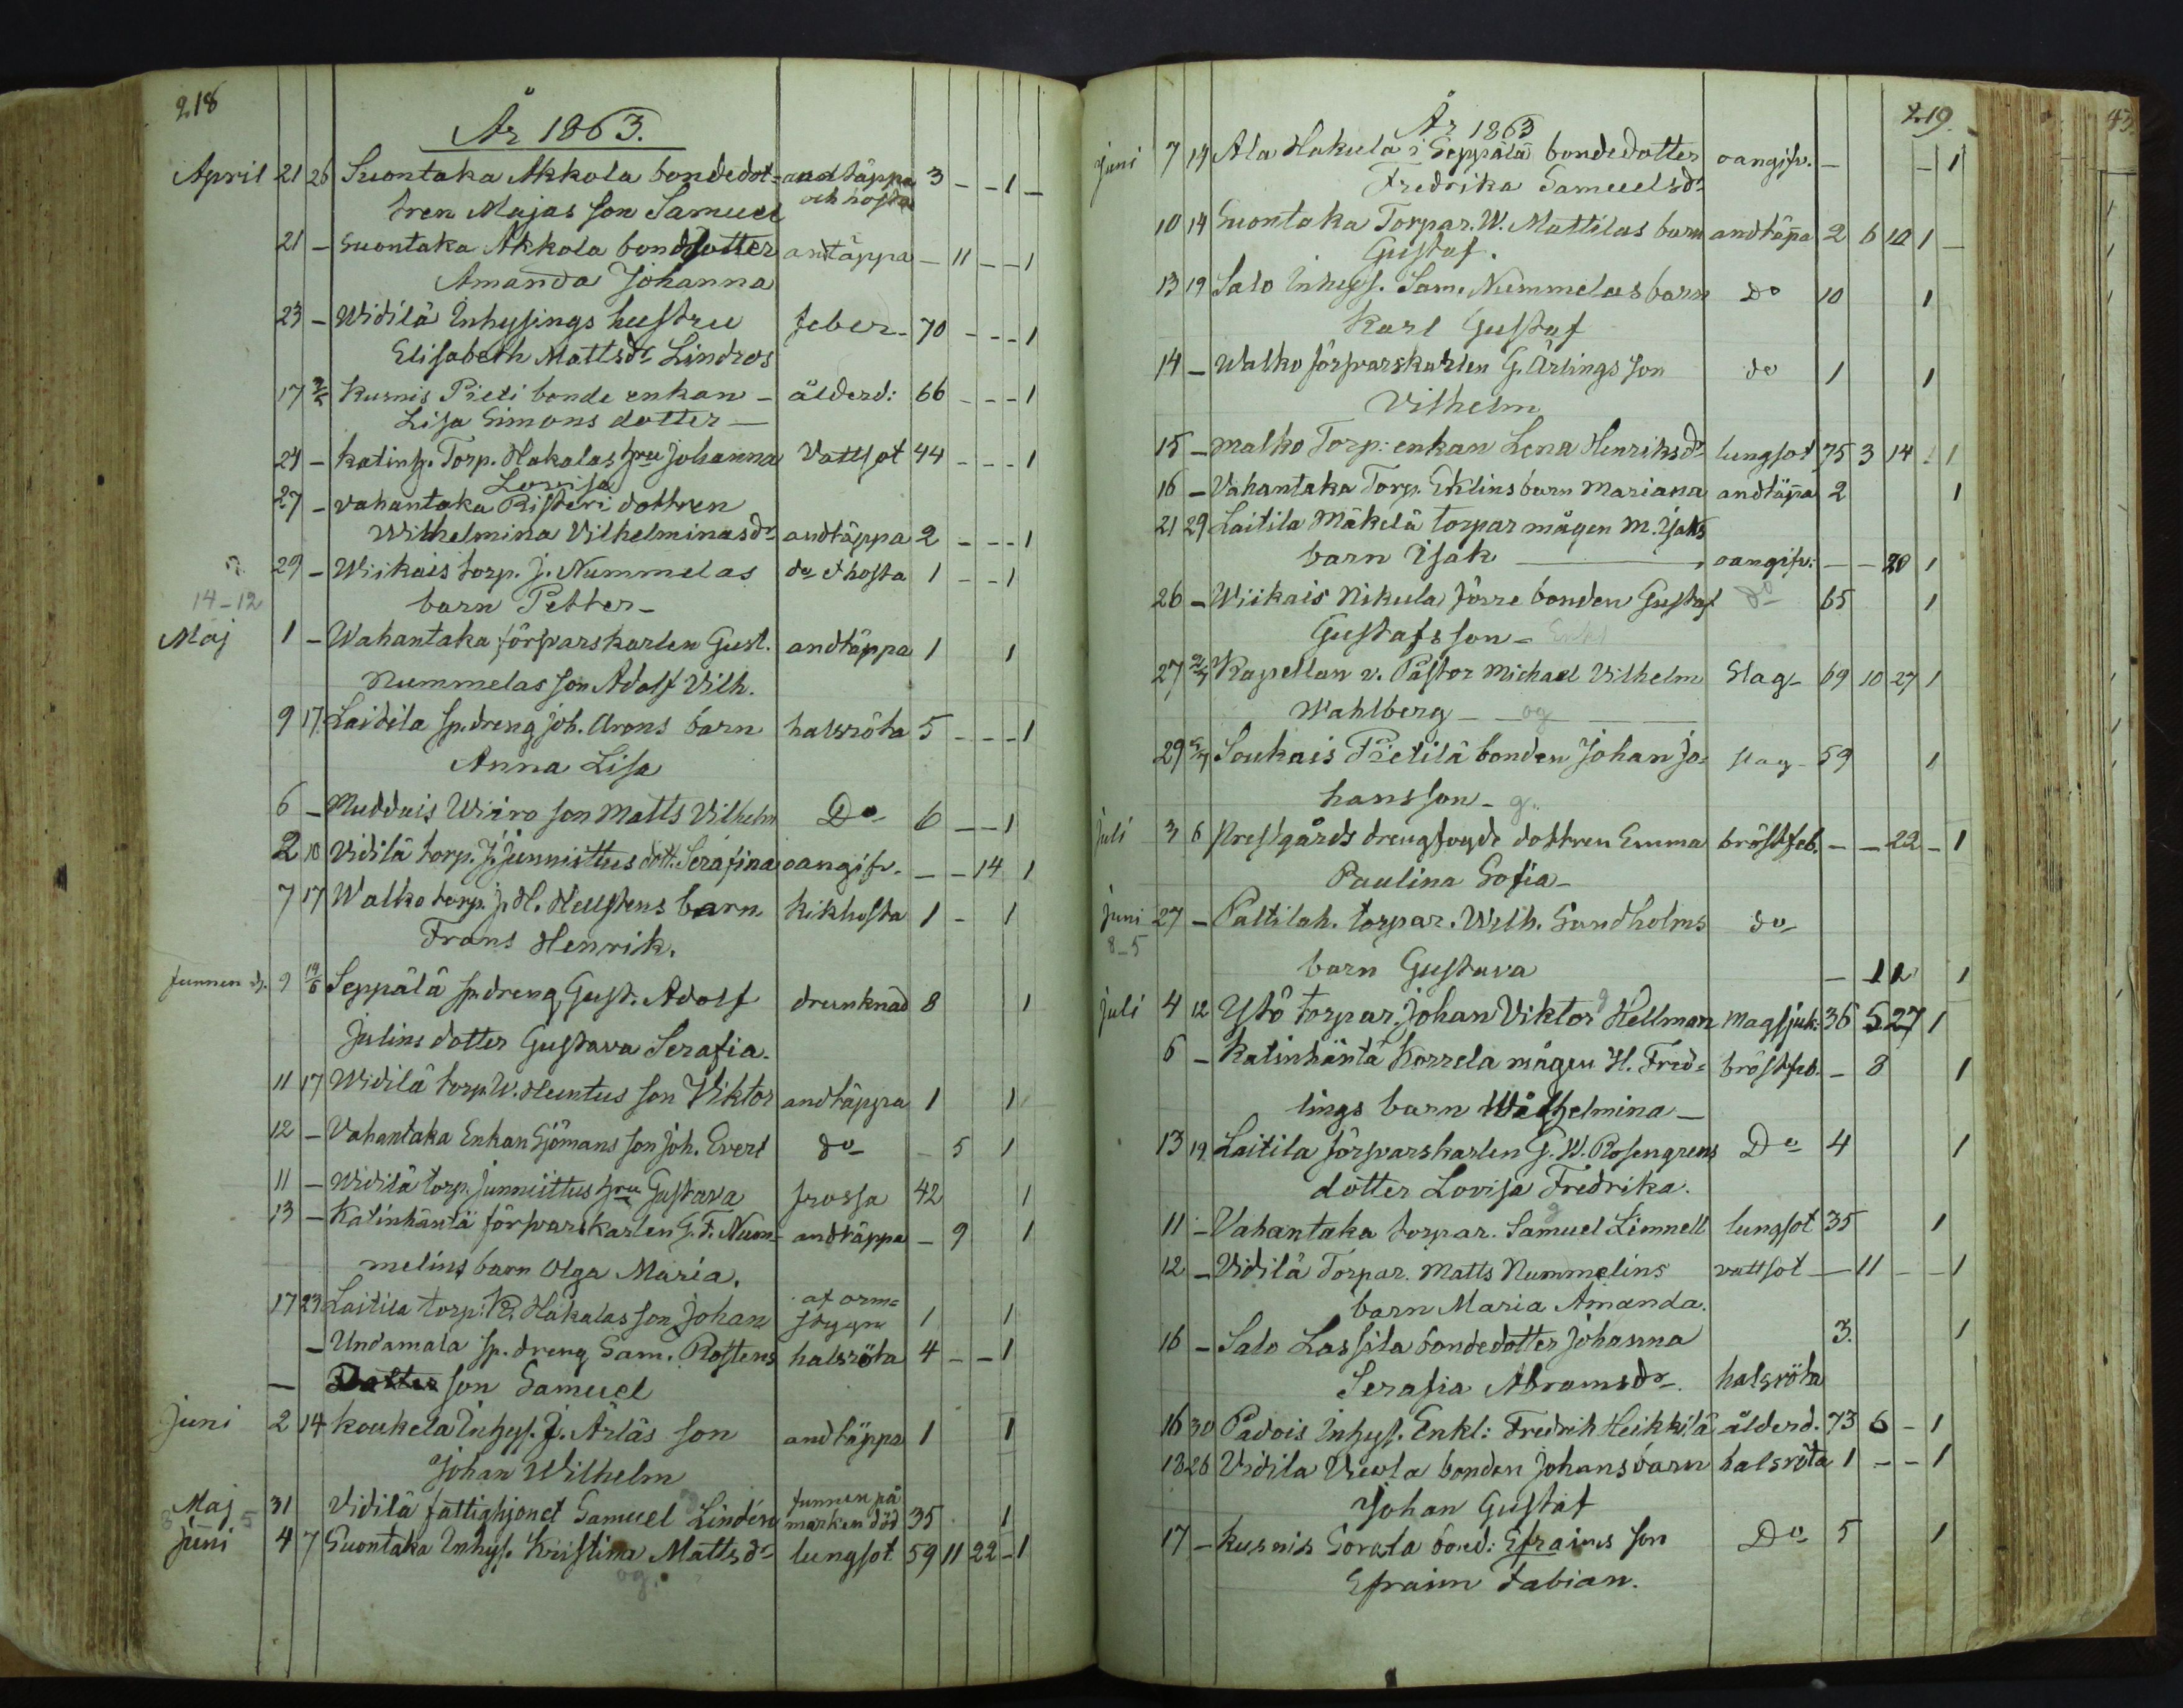 218
År 1863.
April 21 26 Suontaka Akkola bondedot- andtäppa 3 - - 1 -
tren Majas son Samuel och hosta
21 - Suontaka Akkola bondedotter andtäppa - 11 - - 1
Amanda Johanna
23 - Widilä Inhysings hustru feber - 70 - - - 1
Elisabeth Mattsdr Lindros
17 3/5 Kusnis Pieti bonde enkan - ålderd: 66 - - - 1
Lisa Simons dotter -
21 - Katinh. Torp. Hakalas hru Johanna Vattsot 44 - - - 1
Lovisa
27 - Vahantaka Risteri dottren
Wilhelmina Vilhelminasdr andtäppa 2 - - - 1
29 - Wiikais torp. J. Nummelas do et hosta 1 - - 1
14-12 barn Petter -
Maj 1 - Wahantaka försvarskarlen Gust. andtäppa 1 1
Nummelas son Adolf Vilh.
9 17 Laidila sp. dreng Joh. Arons barn halsröta 5 - - - 1
Anna Lisa
6 - Muddais Wiiro son Matts Vilhelm Do - 6 - - 1
2 10 Vidilä torp. J. Junnittus dott. Serafina oangifv. - - 14 1
7 17 Walko torp. J. H. Hellstens barn kikhosta 1 - 1
Frans Henrik.
funnen d. 9 14/6 Seppälä sp. dreng Gust. Adolf drunknad 8 1
Julins dotter Gustava Serafia.
11 17 Widilä torp. W. Huntus son Viktor andtäppa 1 1
12 - Vahantaka Enkan Sjömans son Joh. Evert do - - 5 1
11 - Widilä torp. Junnittus hru Gustava frossa 42 1
13 - Katinhäntä försvarskarlen G. F. Num- andtäppa - 9 1
melins barn Olga Maria.
17 23 Laitila torp: K. Hakalas son Johan af orm-
stygn 1 1
- Undamala sp. dreng Sam. Rostens halsröta 4 - - 1
- son Samuel
Juni 2 14 Koukela Inhys. J. Ärläs son andtäppa 1 1
Johan Wilhelm
Maj 31 Vidilä fattighjonet Samuel Lindén funnen på
marken död 35 1
Juni 4 7 Suontaka Inhys. Kristina Mattsdr lungsot 59 11 22 - 1
og.
219.
År 1863
Juni 7 14 Ala Hakula i Seppälä bondedotter oangifv. - - 1
Fredrika Samuelsdr
10 14 Suontaka Torpar. W. Mattilas barn andtäppa 2 6 10 1 -
Gustaf.
13 19 Salo Inhys. Sam. Nummelas barn do 10 1
Karl Gustaf
14 - Walko försvarskarlen G. Ärlings son do 1 1
Vilhelm
15 - Malko Torp: enkan Lena Henriksdr lungsot 75 3 14 1
16 - Vahantaka Torp. Eklins barn Mariana andtäppa 2 1
21 29 Laitila Mäkelä torpar mågen M. Isaks
barn Isak - oangifv: - - 20 1
26 - Wiikais Nikula förre bonden Gustaf do 65 1
Gustafsson - Enkl
27 2/7 Kapellan v. Pastor Michael Vilhelm Slag - 69 10 27 1
Wahlberg - og
29 5/7 Soukais Pietilä bonden Johan Jo- slag - 59 1
hansson - g.
Juli 3 6 Prestgårds drengfogde dottren Emma bröstfeb. - - 22 - 1
Paulina Sofia -
Juni 27 - Paltilah. torpar. Wilh. Sundholms do
8-5
barn Gustava - 11 1
Juli 4 12 Ystö torpar. Johan Viktor Hellman magsjuk: 36 5 27 1
6 - Katinhäntä Korrela mågen H. Fred- bröstfeb. - 8 1
lings barn Wilhelmina -
13 19 Laitila försvarskarlen G. W. Rosengrens Do 4 1
dotter Lovisa Fredrika.
11 - Vahantaka torpar. Samuel Limnell lungsot 35 1
12 - Vidilä Torpar. Matts Nummelins vattsot - 11 - - 1
barn Maria Amanda.
16 - Salo Lassila bondedotter Johanna 3. 1
Serafia Abramsdr - halsröta
16 30 Padois Inhys. Enkl: Fredrik Heikkilä ålderd. 73 6 - 1
13 26 Vidila Viuola bonden Johans barn halsröta 1 - - 1
Johan Gustaf
17 - Kusnis Sorata bond: Efraims son Do 5 1
Efraim Fabian.
43.